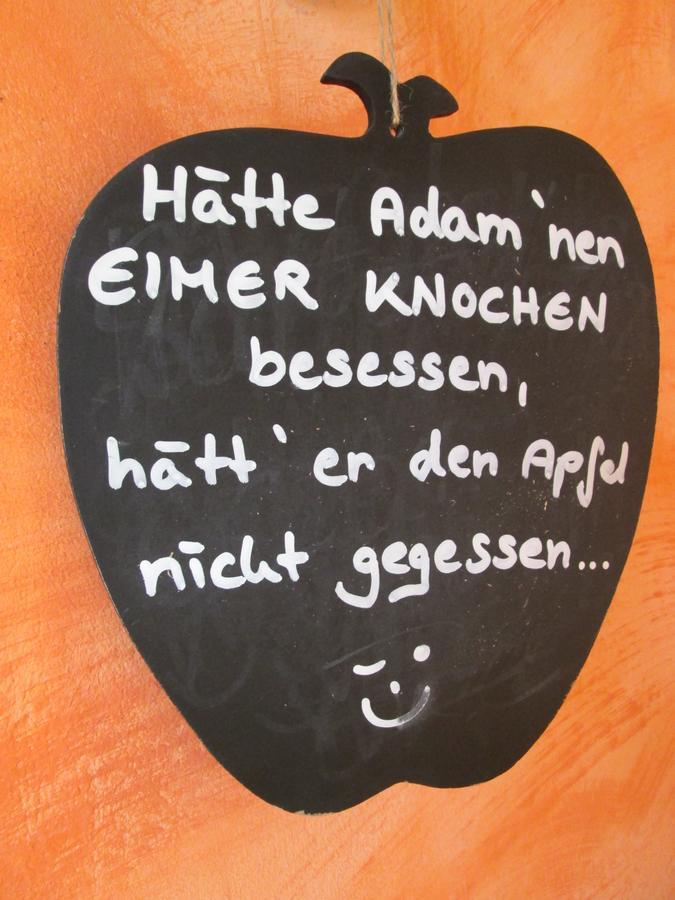 Hätte Adam 'nen
EIMER KNOCHEN
besessen,
hätt' er den Apfel
nicht gegessen...